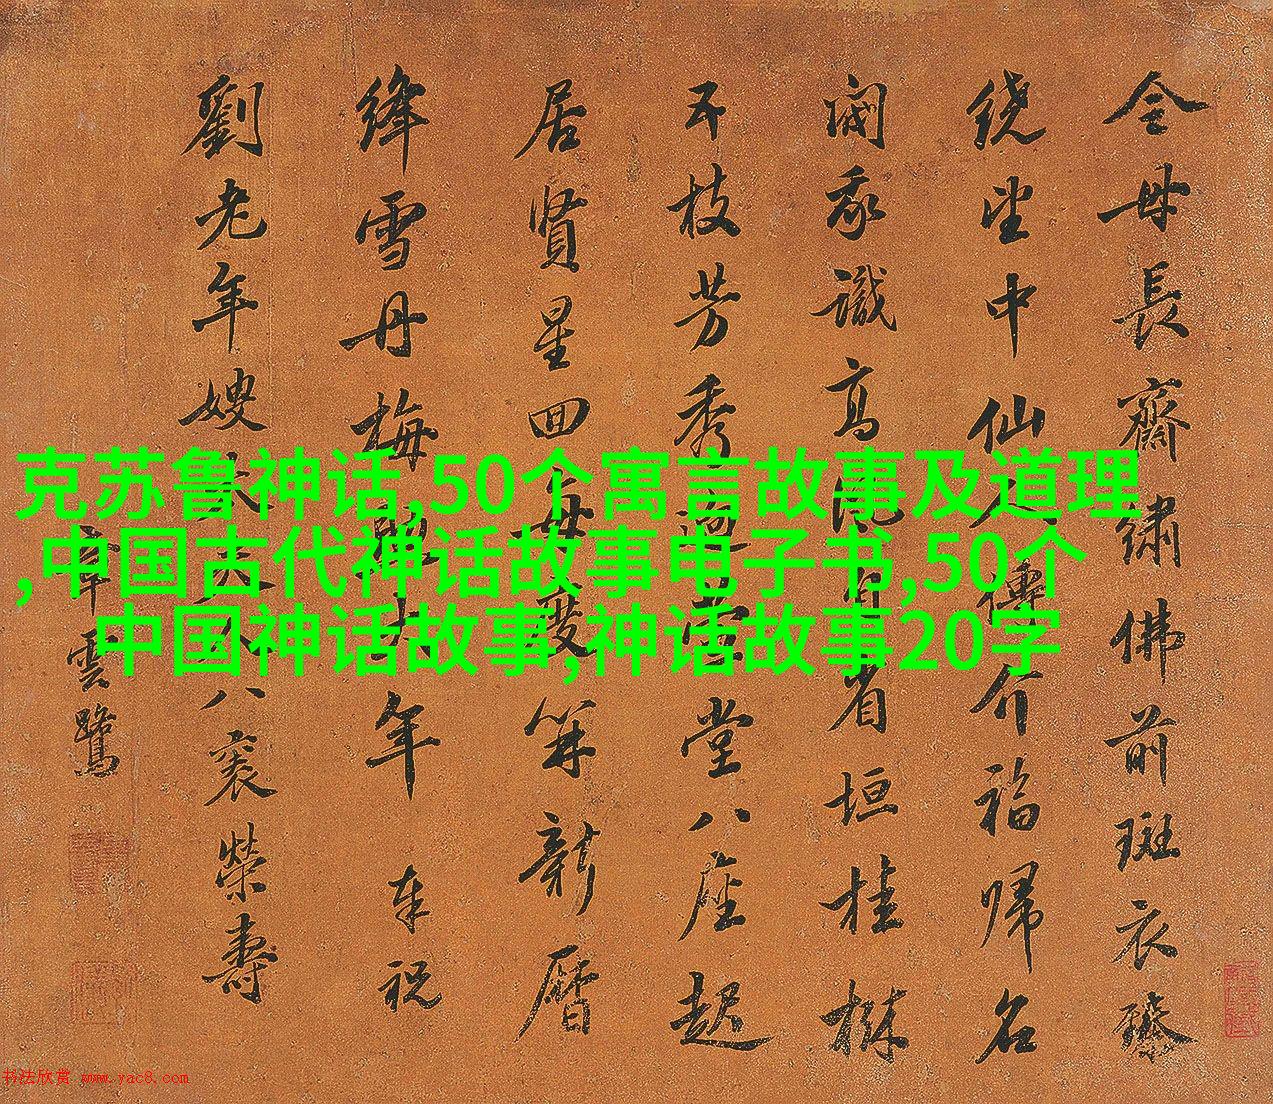 全母長齋繡佛前斑衣璨
繞坐中仙人傳介福歸名
閫我識高風自省垣桂楙
不枝芳秀萱堂八座起
居賢星回每度筭新曆
絳雪丹梅大年奉祝
劉老年嫂林太八袠榮壽
雲鷺
克苏鲁神话,50个寓言故事及道理
,中国古代神话故事电子书,50个
中国神话故事,神话故事20字
书法欣赏 www.yac8.com